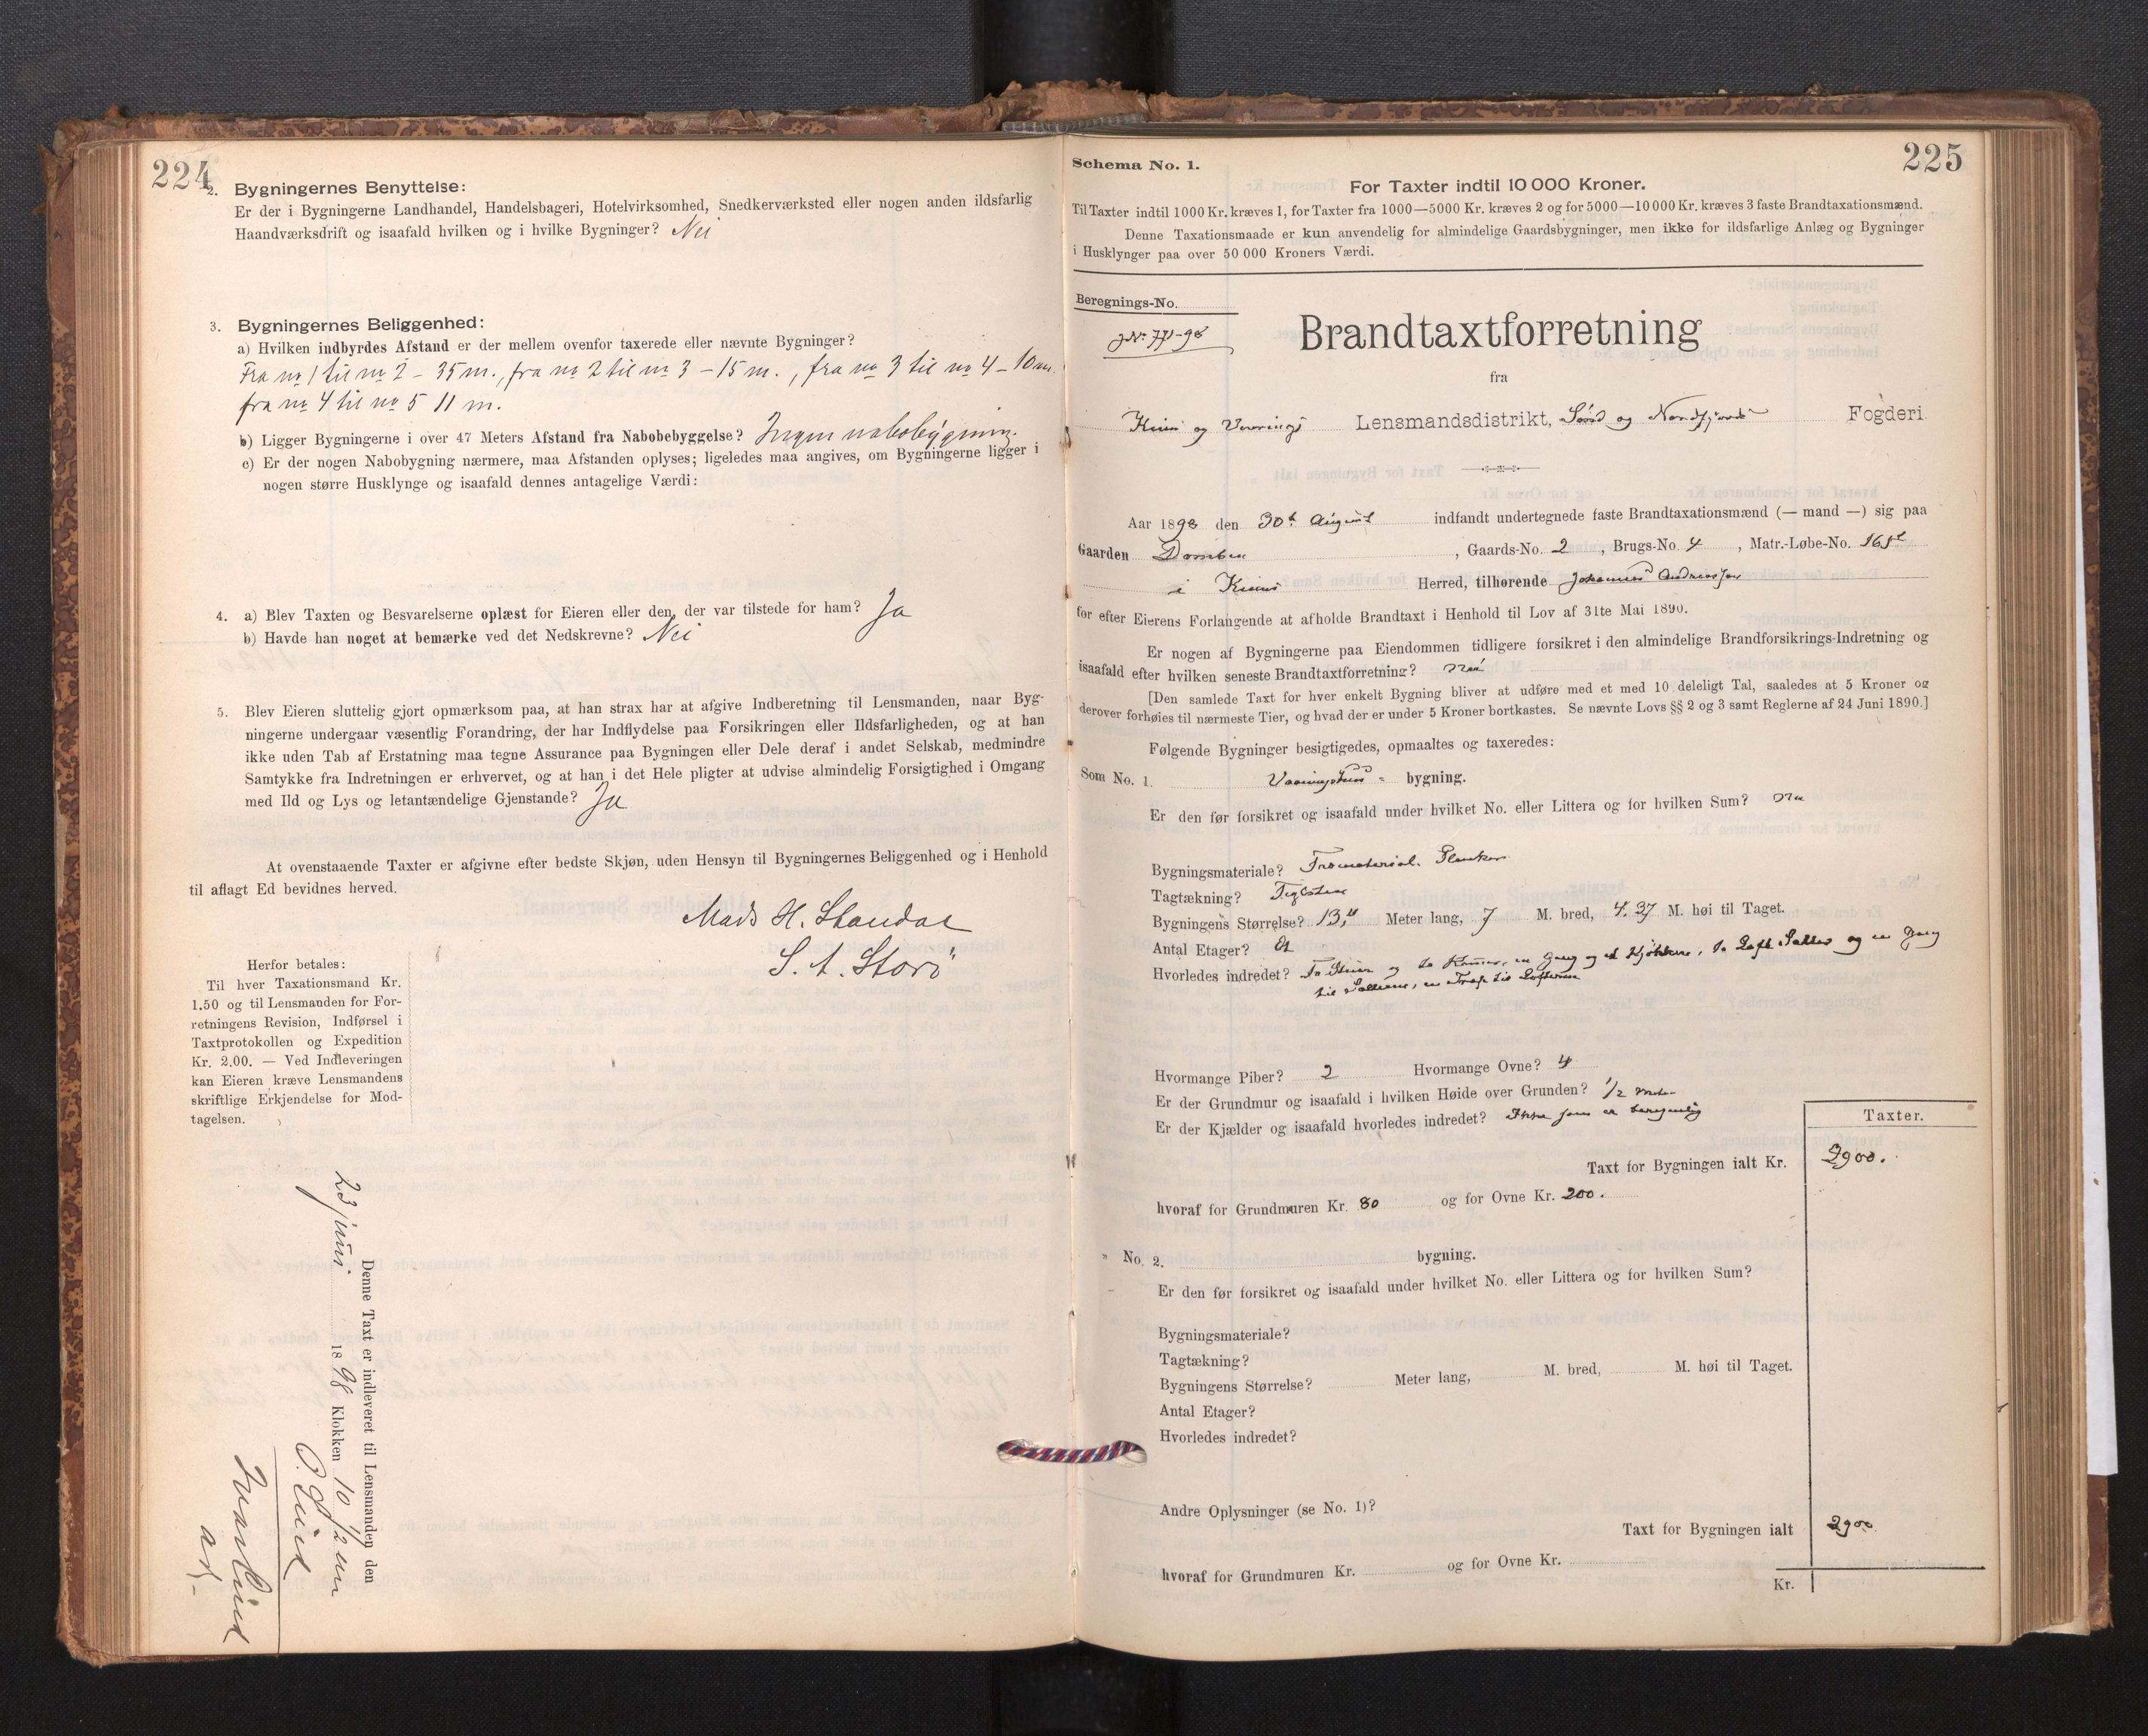 224
2. Bygningernes Benyttelse:
Er der i Bygningerne Landhandel, Handelsbageri, Hotelvirksomhed, Snedkerværksted eller nogen anden ildsfarlig
Haandværksdrift og isaafald hvilken og i hvilke Bygninger? Nei
3. Bygningernes Beliggenhed:
a) Hvilken indbyrdes Afstand er der mellem ovenfor taxerede eller nævnte Bygninger?
Fra no 1 til no 2 - 35 m., fra no 2 til no 3 - 15 m., fra no 3 til no 4 - 10 m.
fra no 4 til no 5 11 m.
b) Ligger Bygningerne i over 47 Meters Afstand fra Nabobebyggelse? Ingen nabobygning.
c) Er der nogen Nabobygning nærmere, maa Afstanden oplyses; ligeledes maa angives, om Bygningerne ligger i
nogen større Husklynge og isaafald dennes antagelige Værdi:
4. a) Blev Taxten og Besvarelserne oplæst for Eieren eller den, der var tilstede for ham? Ja
b) Havde han noget at bemærke ved det Nedskrevne? Nei
5. Blev Eieren sluttelig gjort opmærksom paa, at han strax har at afgive Indberetning til Lensmanden, naar Byg-
ningerne undergaar væsentlig Forandring, der har Indflydelse paa Forsikringen eller Ildsfarligheden, og at han
ikke uden Tab af Erstatning maa tegne Assurance paa Bygningen eller Dele deraf i andet Selskab, medmindre
Samtykke fra Indretningen er erhvervet, og at han i det Hele pligter at udvise almindelig Forsigtighed i Omgang
med Ild og Lys og letantændelige Gjenstande? Ja
At ovenstaaende Taxter er afgivne efter bedste Skjøn, uden Hensyn til Bygningernes Beliggenhed og i Henhold
til aflagt Ed bevidnes herved.
Mads H. Standal
S. A. Storö
Herfor betales:
Til hver Taxationsmand Kr.
1.50 og til Lensmanden for For-
retningens Revision, Indførsel i
Taxtprotokollen og Expedition
Kr. 2.00. — Ved Indleveringen
kan Eieren kræve Lensmandens
skriftlige Erkjendelse for Mod-
tagelsen.
Denne Taxt er indleveret til Lensmanden den
23 juni 1898 Klokken 10 1/2
225
Schema No. 1.
For Taxter indtil 10 000 Kroner.
Til Taxter indtil 1000 Kr. kræves 1, for Taxter fra 1000—5000 Kr. kræves 2 og for 5000—10 000 Kr. kræves 3 faste Brandtaxationsmænd.
Denne Taxationsmaade er kun anvendelig for almindelige Gaardsbygninger, men ikke for ildsfarlige Anlæg og Bygninger
i Husklynger paa over 50 000 Kroners Værdi.
Beregnings-No.
Brandtaxtforretning
fra
Kinn og Lensmandsdistrikt, Sønd og Nordfjords Fogderi
Aar 1898 den 30t August indfandt undertegnede faste Brandtaxationsmænd (— mand —) sig paa
Gaarden , Gaards-No. 2 , Brugs-No. 4 , Matr.-Løbe-No.
i Kinns Herred, tilhørende Johannes Andreassen
for efter Eierens Forlangende at afholde Brandtaxt i Henhold til Lov af 31te Mai 1890.
Er nogen af Bygningerne paa Eiendommen tidligere forsikret i den almindelige Brandforsikrings-Indretning og
isaafald efter hvilken seneste Brandtaxtforretning? Nei
[Den samlede Taxt for hver enkelt Bygning bliver at udføre med et med 10 deleligt Tal, saaledes at 5 Kroner og
derover forhøies til nærmeste Tier, og hvad der er under 5 Kroner bortkastes. Se nævnte Lovs §§ 2 og 3 samt Reglerne af 24 Juni 1890.]
Følgende Bygninger besigtigedes, opmaaltes og taxeredes:
Som No. 1. Vaaningshus- bygning.
Er den før forsikret og isaafald under hvilket No. eller Littera og for hvilken Sum? Nei
Bygningsmateriale? Træmaterial. Planker
Tagtækning? Teglsten
Bygningens Størrelse? 13, Meter lang, 7 M. bred, 4.37 M. høi til Taget.
Antal Etager? et
Hvorledes indredet? To Stuer og to Kamre, en Gang og et Kjøkken, to Loft Saller og en Gang
til Sallene, en Trap til Lofterne
Hvormange Piber? 2 Hvormange Ovne? 4
Er der Grundmur og isaafald i hvilken Høide over Grunden? 1/2 meter
Er der Kjælder og isaafald hvorledes indredet? Ikke som er beregnelig
Taxter.
Taxt for Bygningen ialt Kr. 2900.
hvoraf for Grundmuren Kr. 80 og for Ovne Kr. 200.
" No. 2. bygning.
Er den før forsikret og isaafald under hvilket No. eller Littera og for hvilken Sum?
Bygningsmateriale?
Tagtækning?
Bygningens Størrelse? Meter lang, M. bred, M. høi til Taget.
Antal Etager?
Hvorledes indredet?
Andre Oplysninger (se No. 1)?
Taxt for Bygningen ialt 2900
hvoraf for Grundmuren Kr. og for Ovne Kr.
Kr.